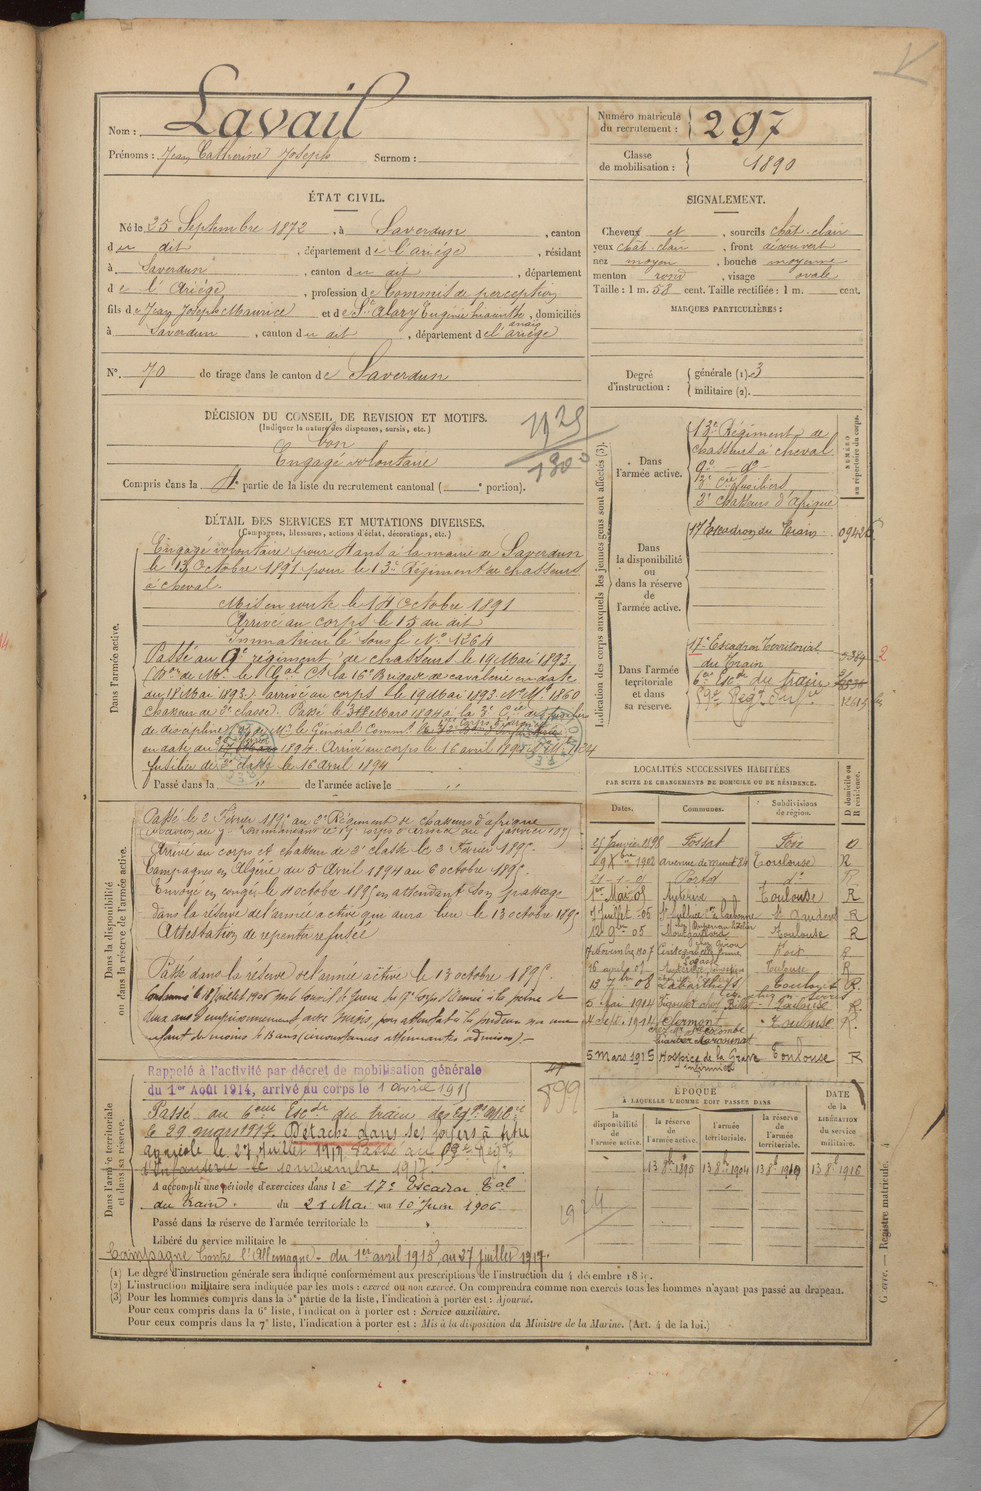 Nom : Lavail
Prénoms : Jean Catherine Joseph Surnom :
Numéro matricule du recrutement : 297
Classe de mobilisation : 1890
ÉTAT CIVIL.
Né le 25 Septembre 1872, à Saverdun, canton
du dit, département de l'ariége, résidant
à Saverdun, canton du dit, département
de l'Ariége, profession de Commis de perception
fils de Jean Joseph Maurice et de Alary Eugénie, domiciliés
à Saverdun, canton du dit, département de l'ariége
N° 70 de tirage dans le canton de Saverdun
SIGNALEMENT.
Cheveux et, sourcils chât. clair
yeux chât. clair, front découvert
nez moyen, bouche moyenne
menton rond, visage ovale
Taille : 1 m. 58 cent. Taille rectifiée : 1 m. cent.
MARQUES PARTICULIÈRES :
Degré d'instruction : générale (1). 3
militaire (2).
DÉCISION DU CONSEIL DE REVISION ET MOTIFS.
(Indiquer la nature des dispenses, sursis, etc.)
bon
Engagé volontaire
Compris dans la 4e partie de la liste du recrutement cantonal ( e portion).
DÉTAIL DES SERVICES ET MUTATIONS DIVERSES.
(Campagnes, blessures, actions d'éclat, décorations, etc.)
Dans l'armée active.
Engagé volontaire pour 4 ans à la mairie de Saverdun
le 13 Octobre 1891 pour le 13e Régiment de chasseurs
à cheval.
Mis en route le 14 Octobre 1891
Arrivé au corps le 15 du dit
Immatriculé sous le No 1264
Passé au 9e régiment de chasseurs le 19 Mai 1893
la 16e Brigade de cavalerie en date
du 18 Mai 1893.) arrivé au corps le 19 Mai 1893. No Ml 1860
chasseur de 2e classe. Passé le Mars 1894 à la 3e Cie de fusiliers
de discipline le Général Commt
en date du 1894. Arrivé au corps le 16 avril 1894
fusilier de 2e classe le 16 avril 1894
Passé dans la " de l'armée active le "
Dans la disponibilité ou dans la réserve de l'armée active.
Passé le 2 Février 1895 au 3e Régiment de chasseurs d'afrique
Arrivé au corps et chasseur de 2e classe le 3 Février 1895.
Campagnes en Algérie du 5 Avril 1894 au 6 octobre 1895.
Envoyé en congé le 4 octobre 1895 en attendant son passage
dans la réserve de l'armée active qui aura lieu le 13 octobre 1895
Attestation de repentir refusée
Passé dans la réserve de l'armée active le 13 octobre 1895.
Condamné le 18 juillet 1906 par le Conseil de Guerre du 17e Corps d'Armée à la peine de
deux ans d'emprisonnement avec sursis, pour attentat à la pudeur sur une
enfant de moins de 13 ans (circonstances atténuantes admises).-
Dans l'armée territoriale et dans sa réserve.
Rappelé à l'activité par décret de mobilisation générale
du 1er Août 1914, arrivé au corps le 1 avril 1915
Passé au 6eme Escdr du train des Eqpges Mlres
le 29 mars 1917. Détaché dans ses foyers à titre
agricole le 27 Juillet 1917 Passé au Régt
d'Infanterie le 10 novembre 1917.
A accompli une période d'exercices dans le 17e Escadron Tal
du train. du 21 Mai au 10 Juin 1906
Passé dans la réserve de l'armée territoriale le
Libéré du service militaire le
Campagne contre l'Allemagne - du 1er avril 1915 au 27 juillet 1917.
1125
1300
899
1924
Indication des corps auxquels les jeunes gens sont affectés (3).
NUMÉRO au répertoire du corps.
Dans l'armée active.
13e Régiment de
chasseurs à cheval
9e - do -
3e Cie fusiliers
3e chasseurs d'afrique
Dans la disponibilité ou dans la réserve de l'armée active.
17e Escadron du Train
Dans l'armée territoriale et dans sa réserve.
17e Escadron Territorial
du Train
6e Escdn du train
Régt Infie
LOCALITÉS SUCCESSIVES HABITÉES
PAR SUITE DE CHANGEMENTS DE DOMICILE OU DE RÉSIDENCE.
Dates. Communes. Subdivisions de région. D domicile ou R résidence.
25 Janvier 1898 Fossat Foix D
1902 avenue de muret 84 Toulouse R
Portet do R
1er Mai 05 Toulouse R
7 Juillet - 05 St Gaudens R
12 9bre 05 Toulouse R
7 Novembre 1907 R
Toulouse R
13 7bre 08 Labarthe Toulouse R
5 Mai 1914 Toulouse R
4 Sept. 1914 Clermont Toulouse R
5 mars 1915 Hospice de la Grave Toulouse R
infirmier
ÉPOQUE
À LAQUELLE L'HOMME DOIT PASSER DANS
la disponibilité de l'armée active. la réserve de l'armée active. l'armée territoriale. la réserve de l'armée territoriale. DATE de la LIBÉRATION du service militaire.
13 8bre 1895 13 8bre 1904 13 8bre 1910 13 8bre 1916
(1) Le degré d'instruction générale sera indiqué conformément aux prescriptions de l'instruction du 4 décembre 1889.
(2) L'instruction militaire sera indiquée par les mots : exercé ou non exercé. On comprendra comme non exercés tous les hommes n'ayant pas passé au drapeau.
(3) Pour les hommes compris dans la 5e partie de la liste, l'indication à porter est : Ajourné.
Pour ceux compris dans la 6e liste, l'indication à porter est : Service auxiliaire.
Pour ceux compris dans la 7e liste, l'indication à porter est : Mis à la disposition du Ministre de la Marine. (Art. 4 de la loi.)
Guerre. — Registre matricule. 4